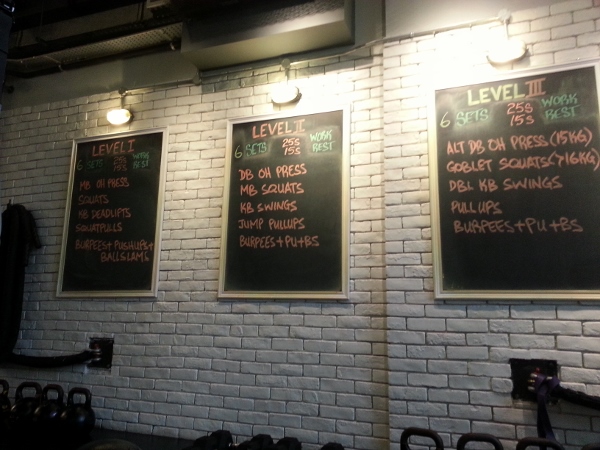 LEVEL I
6 SETS 25s WORK
15s REST
MB OH PRESS
SQUATS
KB DEADLIFTS
SQUATPULLS
BURPEES+PUSHUPS+
BALLSLAMS
LEVEL II
6 SETS 25s WORK
15s REST
DB OH PRESS
MB SQUATS
KB SWINGS
JUMP PULLUPS
BURPEES+PU+BS
LEVEL III
6 SETS 25s WORK
15s REST
ALT DB OH PRESS (15KG)
GOBLET SQUATS (716KG)
DBL KB SWINGS
PULL UPS
BURPEES+PU+BS